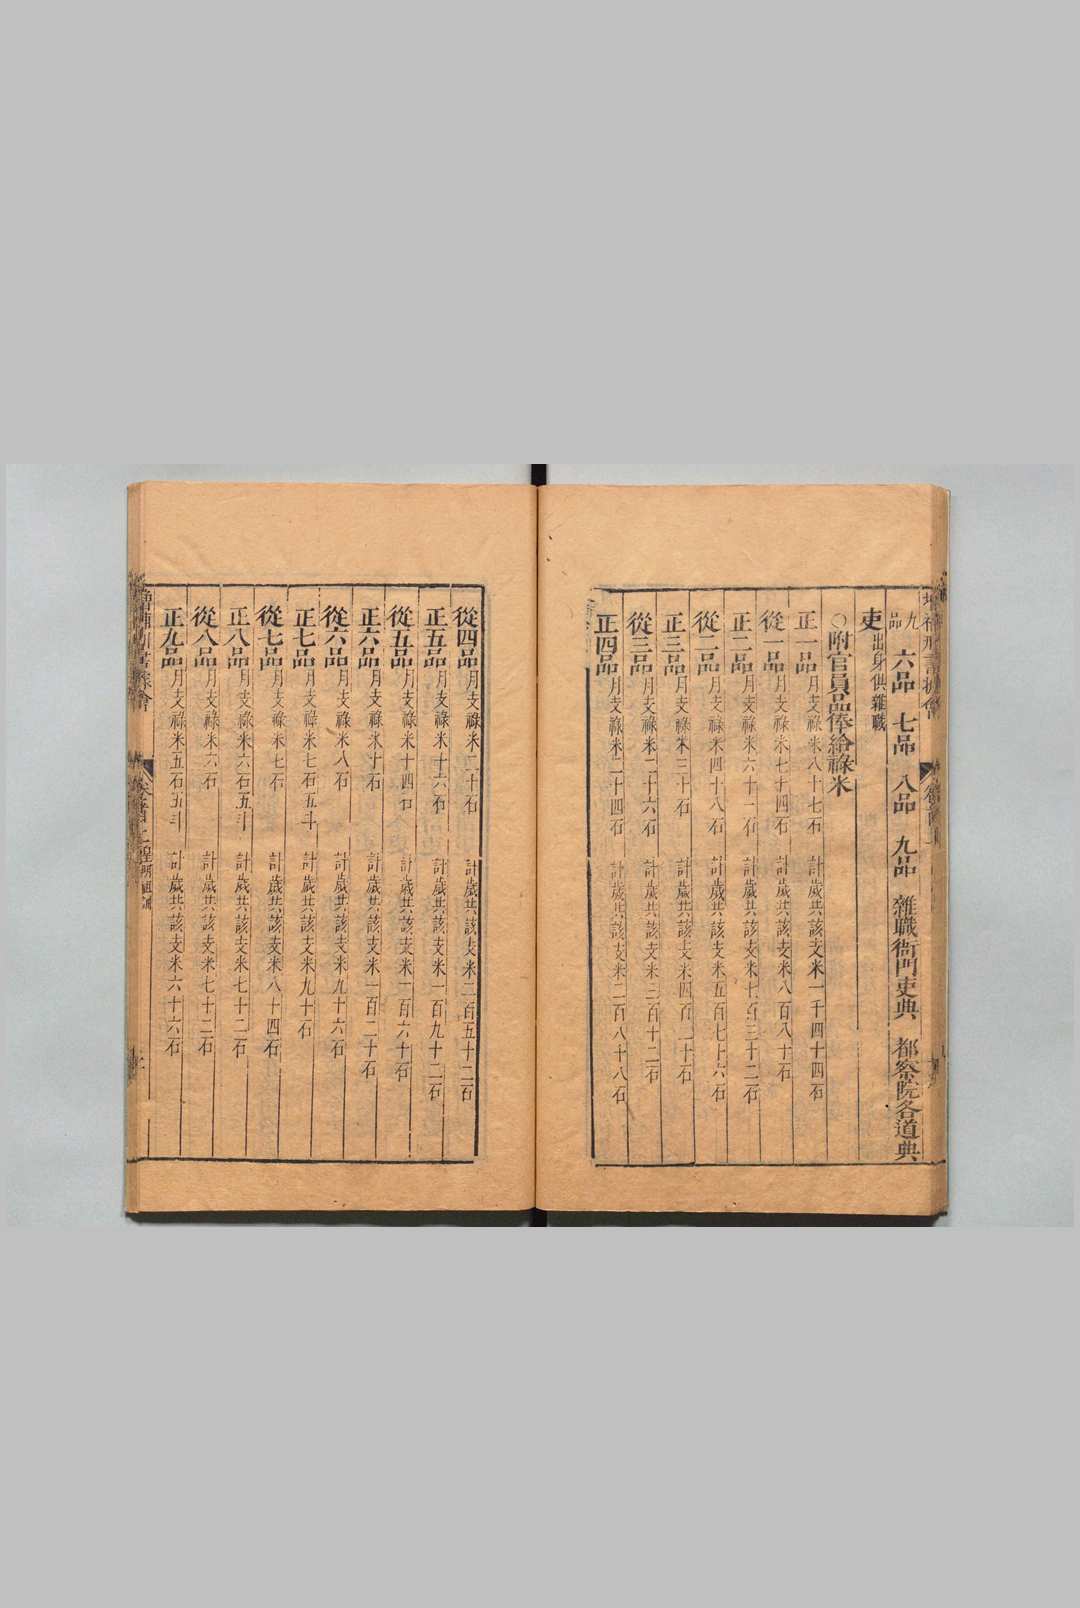 九品 六品 七品 八品 九品 雜職衙門吏典 都察院各道典
吏出身俱雜職
○附官員品俸給祿米
正一品月支祿米八十七石 計歲共該支米一千四十四石
從一品月支祿米七十四石 計歲共該支米八百八十石
正二品月支祿米六十一石 計歲共該支米七百三十二石
從二品月支祿米四十八石 計歲共該支米五百七十六石
正三品月支祿米三十石 計歲共該支米四百二十石
從三品月支祿米二十六石 計歲共該支米三百十二石
正四品月支祿米二十四石 計歲共該支米二百八十八石
從四品月支祿米二十石 計歲共該支米二百五十二石
正五品月支祿米十六石 計歲共該支米一百九十二石
從五品月支祿米十四石 計歲共該支米一百六十石
正六品月支祿米十石 計歲共該支米一百二十石
從六品月支祿米八石 計歲共該支米九十六石
正七品月支祿米七石五斗 計歲共該支米九十石
從七品月支祿米七石 計歲共該支米八十四石
正八品月支祿米六石五斗 計歲共該支米七十二石
從八品月支祿米六石 計歲共該支米七十二石
正九品月支祿米五石五斗 計歲共該支米六十六石